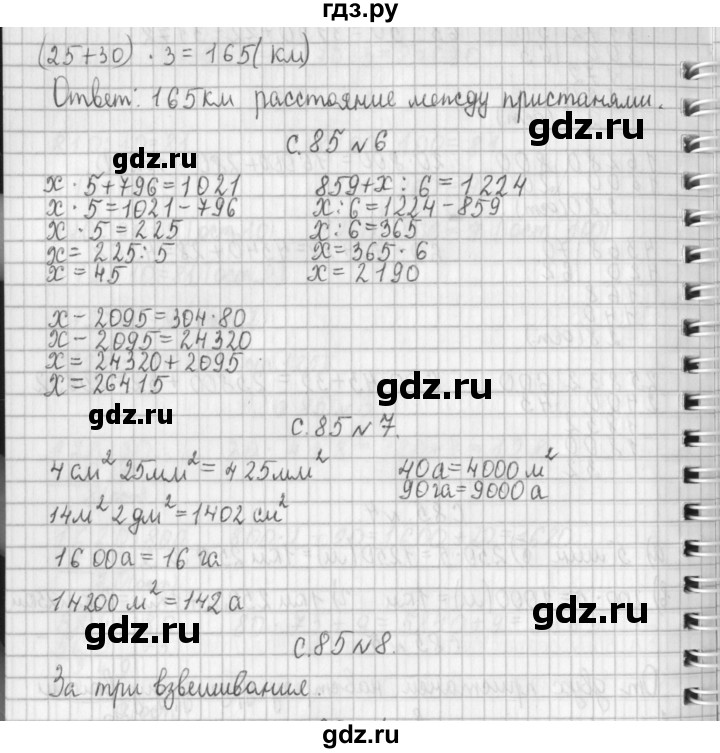 гдз.ру
(25+30) · 3 = 165(км)
Ответ: 165км расстояние между пристанями.
gdz.ru
с.85 №6.
gdz.ru
x · 5+796=1021
x · 5=1021-796
x · 5 = 225
x = 225 : 5
x = 45
859+x : 6 = 1224
x : 6 = 1224-859
x : 6 = 365
x = 365 · 6
x = 2190
x - 2095 = 304 · 80
x - 2095 = 24320
x = 24320 + 2095
x = 26415
gdz.ru
gdz.ru
с.85 №7.
4см² 25мм² = 425мм²
14м² 2дм² = 1402см²
1600а = 16га
14200м² = 142а
40а = 4000м²
90га = 9000а
gdz.ru
gdz.ru
с.85 №8.
За три взвешивания.
gdz.ru